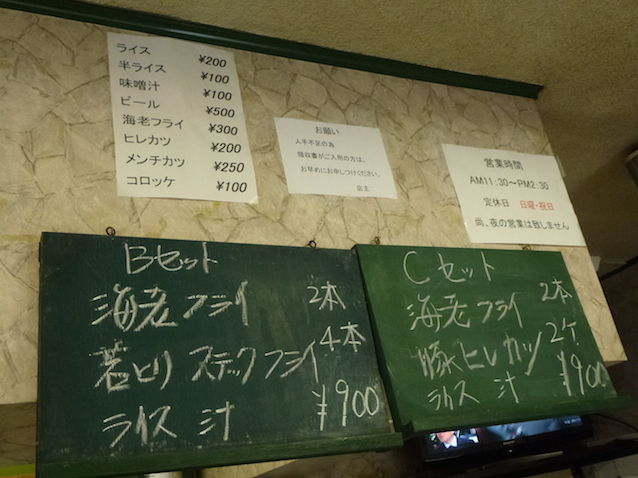 ライス ¥200
半ライス ¥100
味噌汁 ¥100
ビール ¥500
海老フライ ¥300
ヒレカツ ¥200
メンチカツ ¥250
コロッケ ¥100
お願い
人手不足の為
領収書がご入用の方は、
お早めにお申しつけください。
店主
営業時間
AM11:30～PM2:30
定休日 日曜・祝日
尚、夜の営業は致しません
Bセット
海老フライ 2本
若とり ステックフライ 4本
ライス 汁 ¥900
Cセット
海老フライ 2本
豚ヒレカツ 2ケ
ライス 汁 ¥900